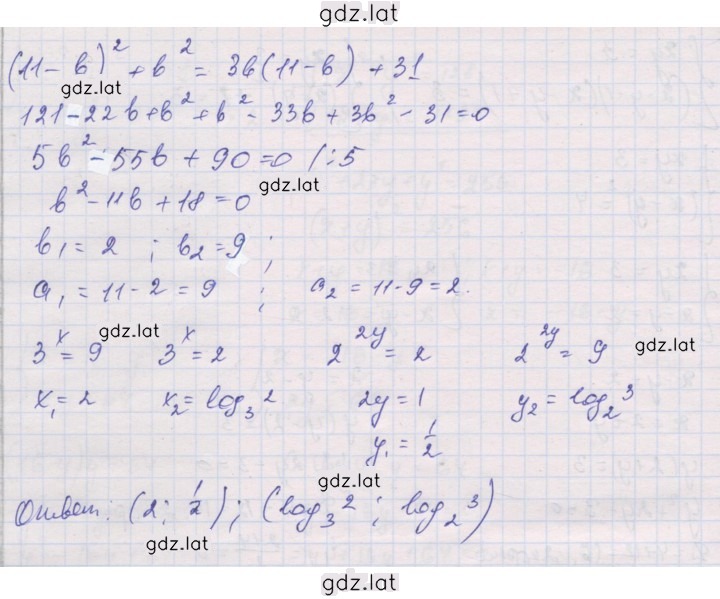 gdz.lat
(11-b)² + b² = 3b(11-b) + 31
gdz.lat
121-22b+b²+b²-33b+3b²-31=0
5b²-55b+90=0 /:5
gdz.lat
b²-11b+18=0
b₁=2 ; b₂=9 ;
a₁=11-2=9 ; a₂=11-9=2.
gdz.lat
3ˣ=9 3ˣ=2 2²ʸ=2 2²ʸ=9
gdz.lat
x₁=2 x₂=log₃2 2y=1 y₂=log₂3
y₁=1/2
gdz.lat
Ответ: (2; 1/2); (log₃2; log₂3)
gdz.lat
gdz.lat